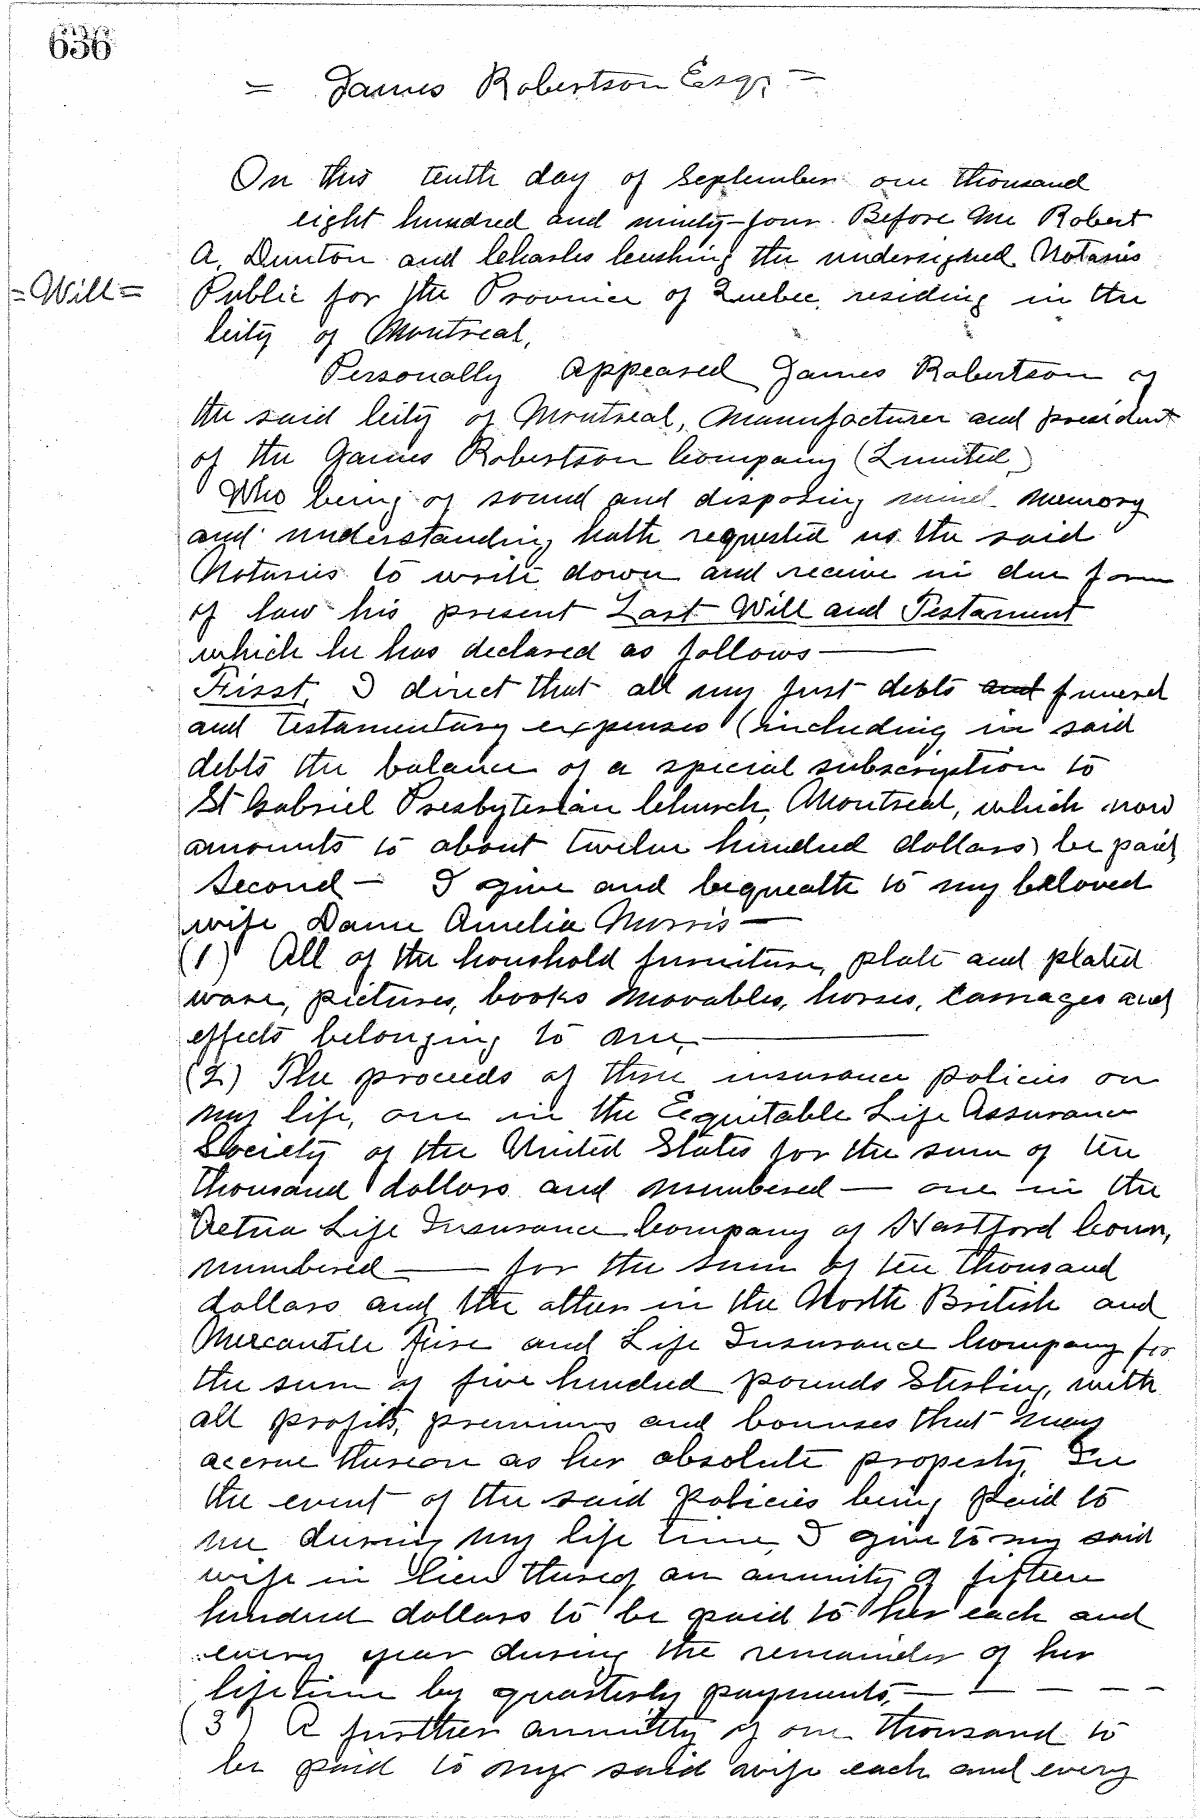 636
= James Robertson Esqr =
On this tenth day of September one thousand
eight hundred and ninety-four Before Me Robert
A. Dunton and Charles Cushing the undersigned Notaries
=Will= Public for the Province of Quebec, residing in the
City of Montreal,
Personally appeared James Robertson of
the said City of Montreal, Manufacturer and president
of the James Robertson Company (Limited,)
Who being of sound and disposing mind memory
and understanding hath requested us the said
Notaries to write down and receive in due form
of law his present Last Will and Testament
which he has declared as follows —
First, I direct that all my just debts and funeral
and testamentary expenses (including in said
debts the balance of a special subscription to
St Gabriel Presbyterian Church, Montreal, which now
amounts to about twelve hundred dollars) be paid,
Second — I give and bequeath to my beloved
wife Dame Amelia Morris —
(1) All of the houshold furniture, plate and plated
ware, pictures, books movables, horses, carriages and
effects belonging to me, —
(2) The proceeds of three insurance policies on
my life, one in the Equitable Life Assurance
Society of the United States for the sum of ten
thousand dollars and numbered — one in the
Aetna Life Insurance Company of Hartford Conn,
numbered — for the sum of ten thousand
dollars and the other in the North British and
Mercantile Fire and Life Insurance Company for
the sum of five hundred pounds Sterling, with
all profits, premiums and bonuses that may
accrue thereon as her absolute property, In
the event of the said policies being paid to
me during my life time, I give to my said
wife in lieu thereof an annuity of fifteen
hundred dollars to be paid to her each and
every year during the remainder of her
lifetime by quarterly payments, — — — — —
(3) A further annuity of one thousand to
be paid to my said wife each and every